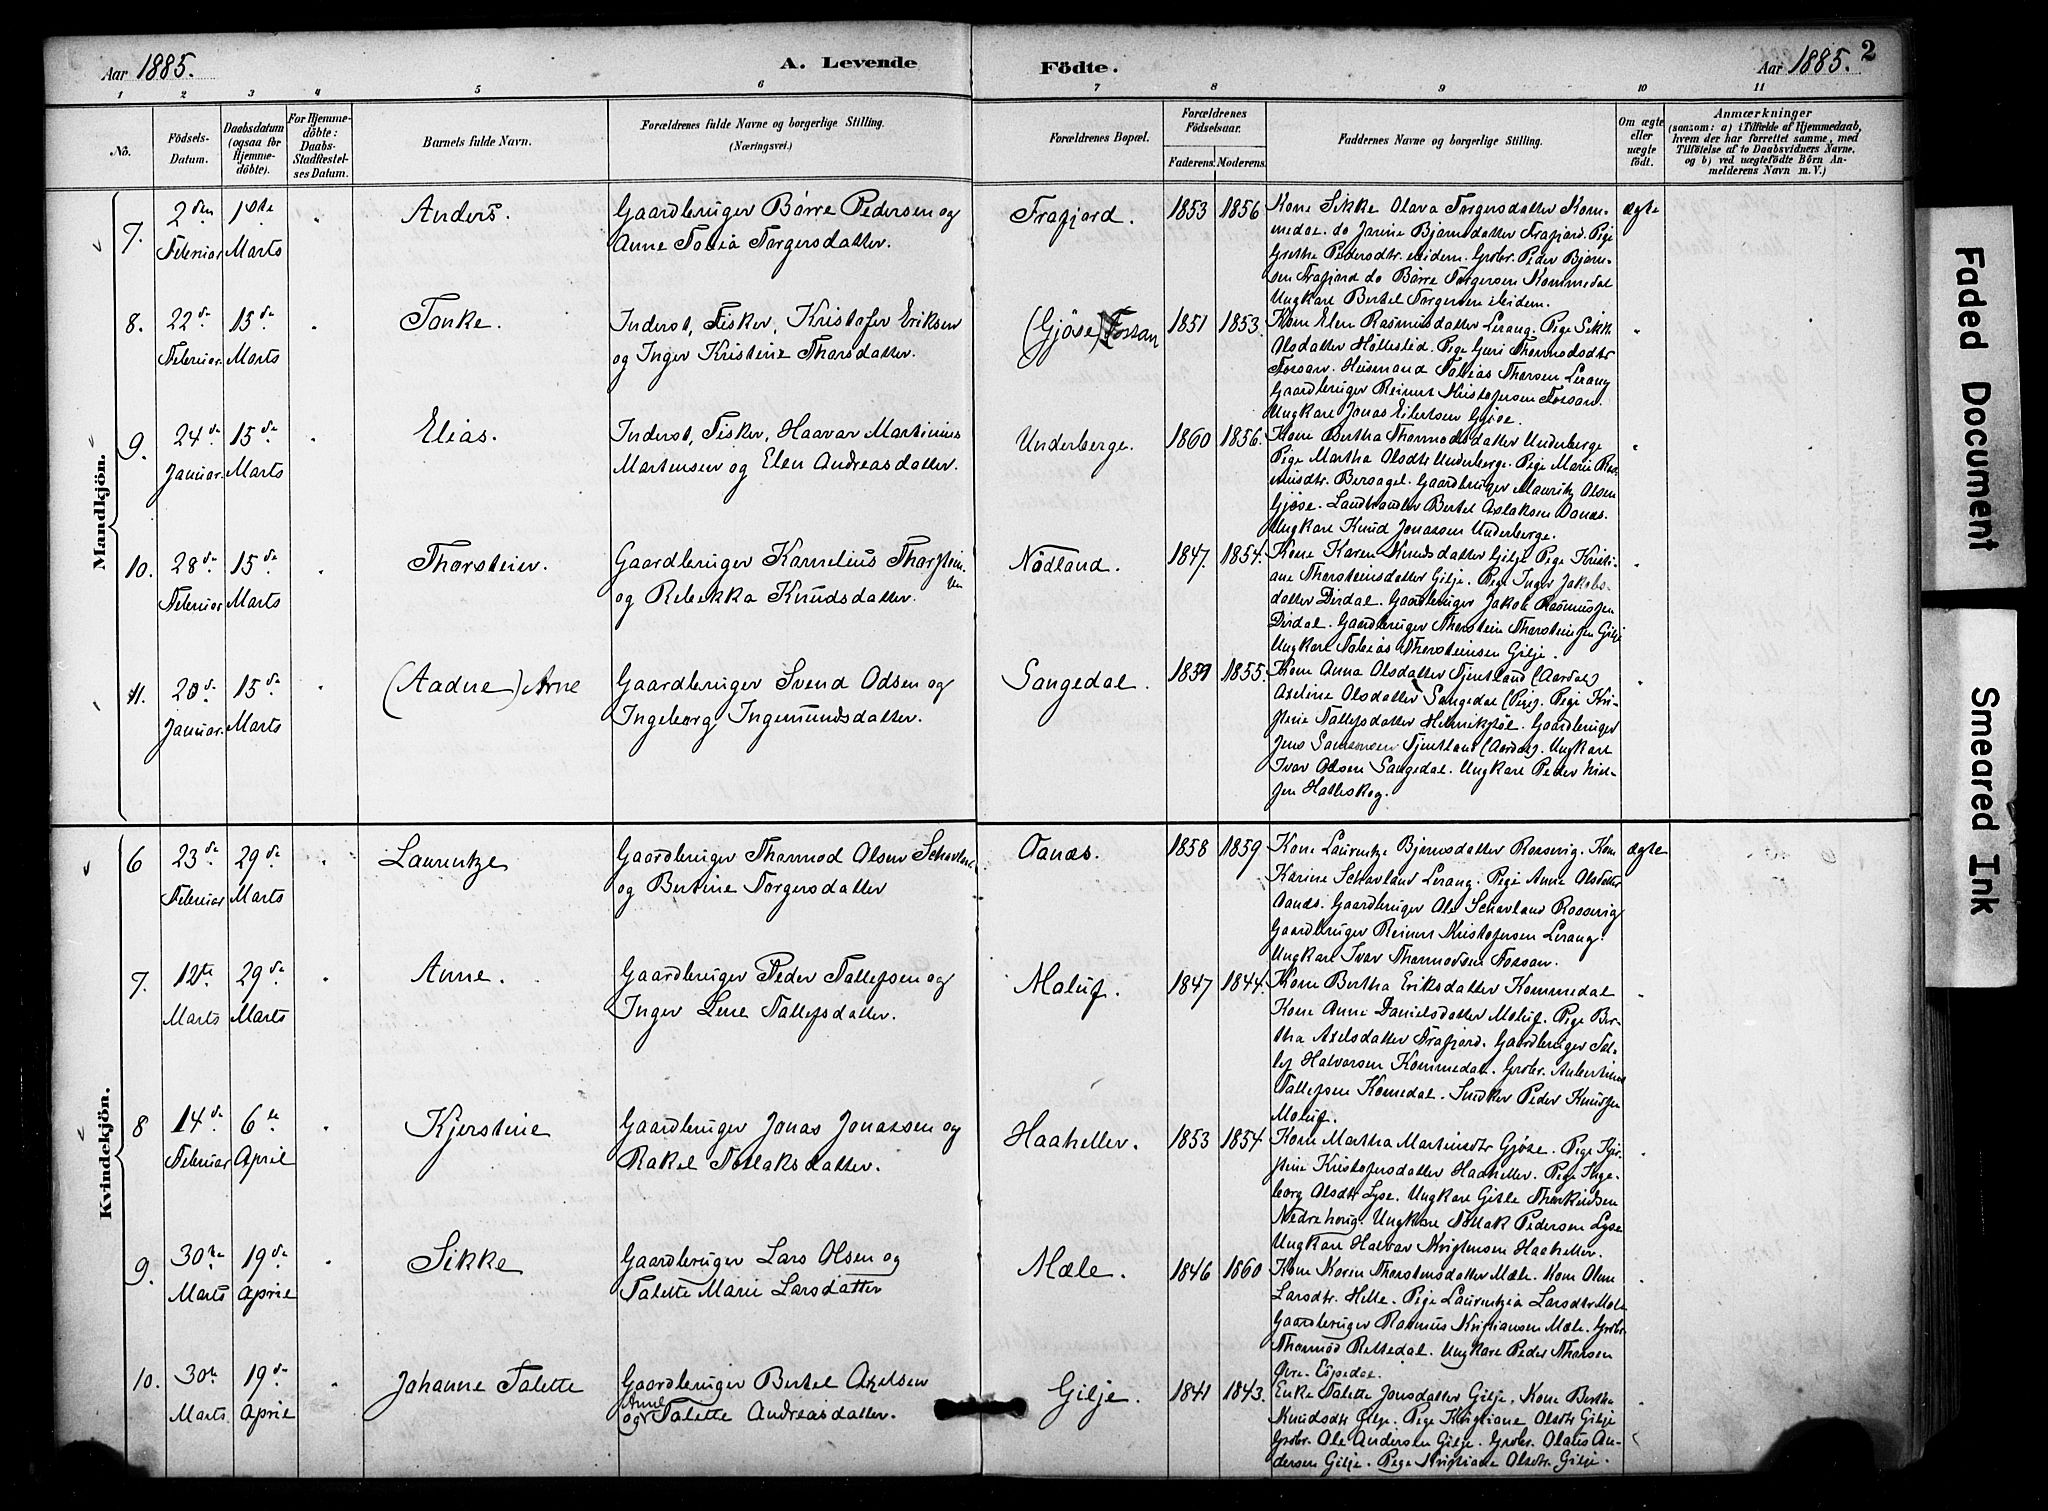 Aar 1885.
A. Levende
Födte.
Aar 1885.
2
1 2 3 4 5 6 7 8 9 10 11
No.
Födsels-
Datum.
Daabsdatum
(ogsaa for
Hjemme-
döbte).
For Hjemme-
döbte:
Daabs-
Stadfæstel-
ses Datum.
Barnets fulde Navn.
Forældrenes fulde Navne og borgerlige Stilling.
(Næringsvei.)
Forældrenes Bopæl.
Forældrenes
Födselsaar.
Faderens. Moderens.
Faddernes Navne og borgerlige Stilling.
Om ægte
eller
uægte
födt.
Anmærkninger
(saasom: a) i Tilfælde af Hjemmedaab,
hvem der har forrettet samme, med
Tilföielse af to Daabsvidners Navne,
og b) ved uægtefödte Börn An-
melderens Navn m. V.)
Mandkjön.
7.
2den
Februar
1ste
Marts
Anders.
Gaardbruger Börre Pedersen og
Anne Torgersdatter.
Frafjord.
1853 1856
Kone Sikke Olava Torgersdatter Kom-
medal. do Janine Bjørnsdatter Frafjord. Pige
Grethe Pedersdtr. ibidem. Grdbr. Peder Bjørn-
sen Frafjord do Börre Torgersen Kommedal
Ungkarl Bertel Torgersen ibidem.
ægte
8.
22de
Februar
15de
Marts
Tonke.
Inderst, Fisker, Kristofer Eriksen
og Inger Kristine Tharsdatter.
(Gjöse) Forsan
1851 1853.
Kone Elen Rasmusdatter Lerang. Pige Sikke
Olsdatter Hollesli. Pige Guri Thormodsdtr
Forsan. Husmand Tobias Thorsen Lerang
Gaardbruger Reinert Kristofersen Forsan.
Ungkarl Jonas Eilertsen Gjöse.
"
9.
24de
Januar.
15de
Marts
Elias.
Inderst, Fisker, Haavar Martinius
Martensen og Elen Andreasdatter.
Underberge.
1860 1856.
Kone Bertha Thormodsdatter Underberge
Pige Martha Olsdtr Underberge. Pige Marie Ras-
musdtr. Bersagel. Gaardbruger Mauritz Olsen
Gjöse. Landhandler Bertel Aslaksen Oanæs.
Ungkarl Knud Jonassen Underberge.
"
10.
28de
Februar
15de
Marts
Thorstein.
Gaardbruger Kornelius Thorstein-
sen
og Rebekka Knudsdatter.
Nödland.
1847. 1854.
Kone Karen Knudsdatter Gilje Pige Kristi-
ane Thorsteinsdatter Gilje. Pige Inger Jakobs-
datter Dirdal. Gaardbruger Jakob Rasmussen
Dirdal. Gaardbruger Thorstein Thorsteinsen Gilje
Ungkarl Tobias Thorsteinsen Gilje.
"
11.
20de
Januar.
15de
Marts
(Aadne) Arne
Gaardbruger Svend Odsen og
Ingeborg Ingemundsdatter.
Sangedal.
1855.
Kone Anna Olsdatter Tjentland (Aardal)
Axeline Olsdatter Sangedal (Pige). Pige Kri-
stine Tallefsdatter
Jens Samsonsen Tjentland (Aardal). Ungkarl
Ivar Odsen Sangedal. Ungkarl Peder Niel-
sen Halleskog.
"
Kvindekjön.
6
23de
Februar
29de
Marts
Laurentze
Gaardbruger Thormod Olsen Schavland
og Bertine Torgersdatter
Oanæs.
1858 1859
Kone Laurentze Bjørnsdatter Rossevig. Kone
Karine Schavland Lerang. Pige Anne Olsdatter
Oanæs. Gaardbruger Ole Schavland Rossevig
Gaardbruger Reinert Kristofersen Lerang.
Ungkarl Ivar Thormodsen Forsan.
ægte
7.
12te
Marts
29de
Marts
Anne.
Gaardbruger Peder Tallefsen og
Inger Lene Tallefsdatter.
Moluf.
1847 1844.
Kone Bertha Eriksdatter Kommedal
Kone Anne Danielsdatter Moluf. Pige Ber-
tha Axelsdatter Frafjord. Gaardbruger Tal-
lef Halvorsen Kommedal. Grdbr.
Tallefsen Komedal. Peder Knudsen
Moluf.
"
8
14de
Februar
6te
April
Kjerstine
Gaardbruger Jonas Jonassen og
Rakel Tollaksdatter.
Haaheller.
1853 1854
Kone Martha Martinsdtr Gjöse. Pige Kjer-
stine Kristofersdatter Haaheller. Pige Inge-
borg Olsdtr Lyse. Ungkarl Gitle Thorkildsen
Nedrehong. Ungkarl Tollak Pedersen Lyse
Ungkarl Halvor Kristensen Haaheller.
"
9.
30te
Marts
19de
April
Sikke
Gaardbruger Lars Olsen og
Talette Marie Larsdatter
Mæle.
1846 1860
Kone Karin Thorstensdatter Mæle. Kone Oline
Larsdtr. Helle. Pige Laurentzia Larsdtr Mæle
Gaardbruger Rasmus Kristiansen Mæle. Grdbr.
Thormod Rettedal. Ungkarl Peder Thorsen
Övre Espedal.
"
10.
30te
Marts.
19de
April
Johanne Talette
Gaardbruger Bertel Axelsen
og Anne Talette Andreasdatter.
Gilje.
1841 1843.
Enke Talette Jonsdatter Gilje. Kone Bertha
Knudsdtr Gilje. Pige Kristiane Olsdtr Gilje
Grdbr. Ole Andersen Gilje. Grdbr. Olaus An-
dersen Gilje. Pige Kristiane Olsdtr. Gilje.
"
Faded Document
Smeared Ink